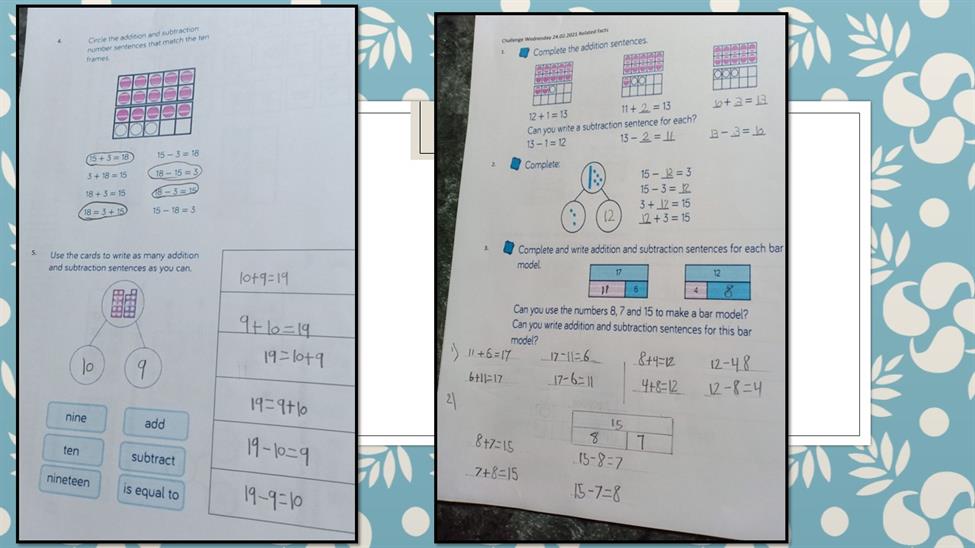 4. Circle the addition and subtraction
number sentences that match the ten
frames.
15 + 3 = 18 15 − 3 = 18
3 + 18 = 15 18 − 15 = 3
18 + 3 = 15 18 − 3 = 15
18 = 3 + 15 15 − 18 = 3
5. Use the cards to write as many addition
and subtraction sentences as you can.
10 9
nine add
ten subtract
nineteen is equal to
10+9=19
9+10=19
19=10+9
19=9+10
19-10=9
19-9=10
Challenge Wednesday 24.02.2021 Related Facts
1. Complete the addition sentences.
12 + 1 = 13 11 + 2 = 13 10 + 3 = 13
Can you write a subtraction sentence for each?
13 − 1 = 12 13 − 2 = 11 13 − 3 = 10
2. Complete:
12
15 − 12 = 3
15 − 3 = 12
3 + 12 = 15
12 + 3 = 15
3. Complete and write addition and subtraction sentences for each bar
model.
17 12
11 6 4 8
Can you use the numbers 8, 7 and 15 to make a bar model?
Can you write addition and subtraction sentences for this bar
model?
1) 11+6=17 17-11=6 8+4=12 12-4 8
6+11=17 17-6=11 4+8=12 12-8=4
2)
15
8 7
8+7=15 15-8=7
7+8=15 15-7=8